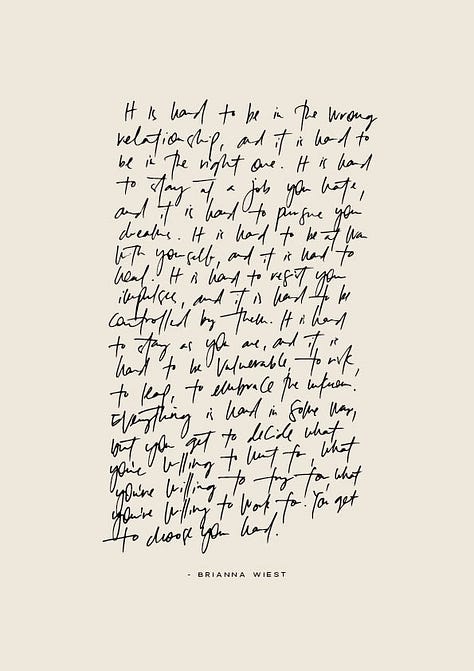 It is hard to be in the wrong
relationship, and it is hard to
be in the right one. It is hard
to stay at a job you hate,
and it is hard to pursue your
dreams. It is hard to be at war
with yourself, and it is hard to
heal. It is hard to resist your
impulses, and it is hard to be
controlled by them. It is hard
to stay as you are, and it is
hard to be vulnerable, to risk,
to leap, to embrace the unknown.
Everything is hard in some way,
but you get to decide what
you're willing to hurt for, what
you're willing to try for, what
you're willing to work for. You get
to choose your hard.
- BRIANNA WIEST